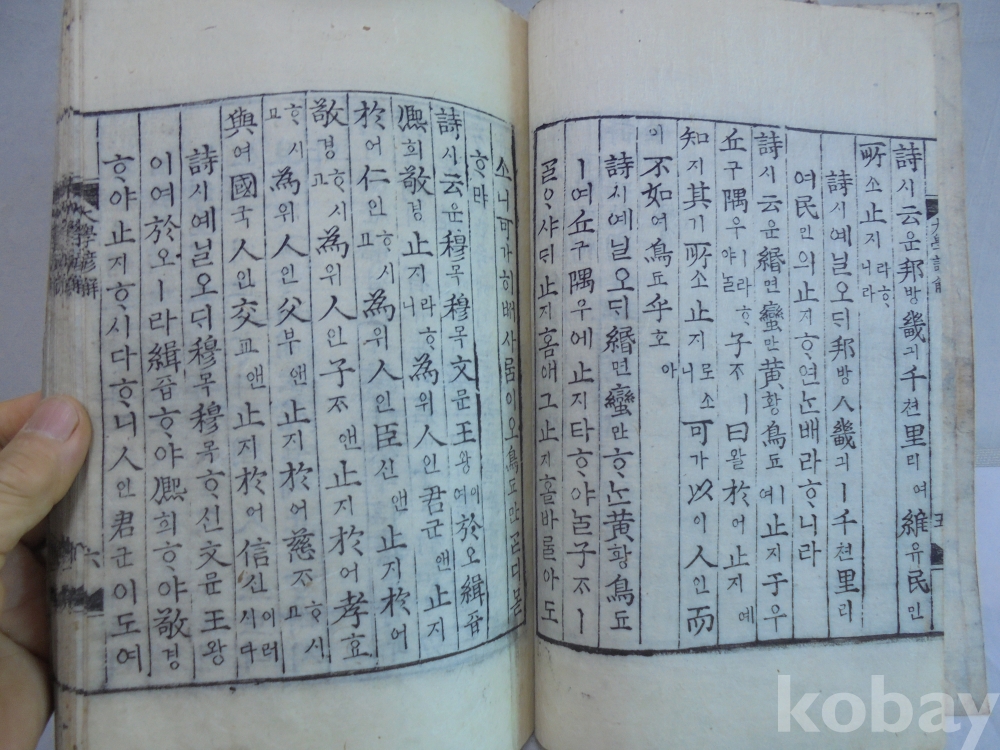 詩시云운邦방畿긔千쳔里리여維유民민
所소止지라ᄒᆞ니라
詩시예닐오ᄃᆡ邦방人畿긔ㅣ千쳔里리
여民민의止지ᄒᆞ연ᄂᆞᆫ배라ᄒᆞ니라
詩시云운緡면蠻만黃황鳥됴여ㅣ止지于우
丘구隅우ㅣ라ᄒᆞ야ᄂᆞᆯ子ᄌᆞㅣ曰왈於어止지예
知지其기所소止지로소니可가以이人인而
이不如여鳥됴乎호아
詩시예닐오ᄃᆡ緡면蠻만ᄒᆞᄂᆞᆫ黃황鳥됴
ㅣ여丘구隅우에止지타ᄒᆞ야ᄂᆞᆯ子ᄌᆞㅣ
ᄀᆞᆯᄋᆞ샤ᄃᆡ止지홈애그止지홀바ᄅᆞᆯ아도
소니可가히ᄡᅥ사ᄅᆞᆷ이오鳥됴만ᄀᆞᆮ디몯
ᄒᆞ랴
詩시云운穆목穆목文문王왕이여於오緝즙
熙희敬경止지라ᄒᆞ니爲위人인君군앤止지
於어仁인ᄒᆞ시고爲위人인臣신앤止지於어
敬경ᄒᆞ시고爲위人인子ᄌᆞ앤止지於어孝효
ᄒᆞ시고爲위人인父부앤止지於어慈ᄌᆞᄒᆞ시고
與여國국人인交교앤止지於어信신이러시다
詩시예닐오ᄃᆡ穆목穆목ᄒᆞ신文문王왕
이여於오ㅣ라緝즙ᄒᆞ야熙희ᄒᆞ야敬경
ᄒᆞ야止지ᄒᆞ시다ᄒᆞ니人인君군이도여
大學諺解 六
kobay